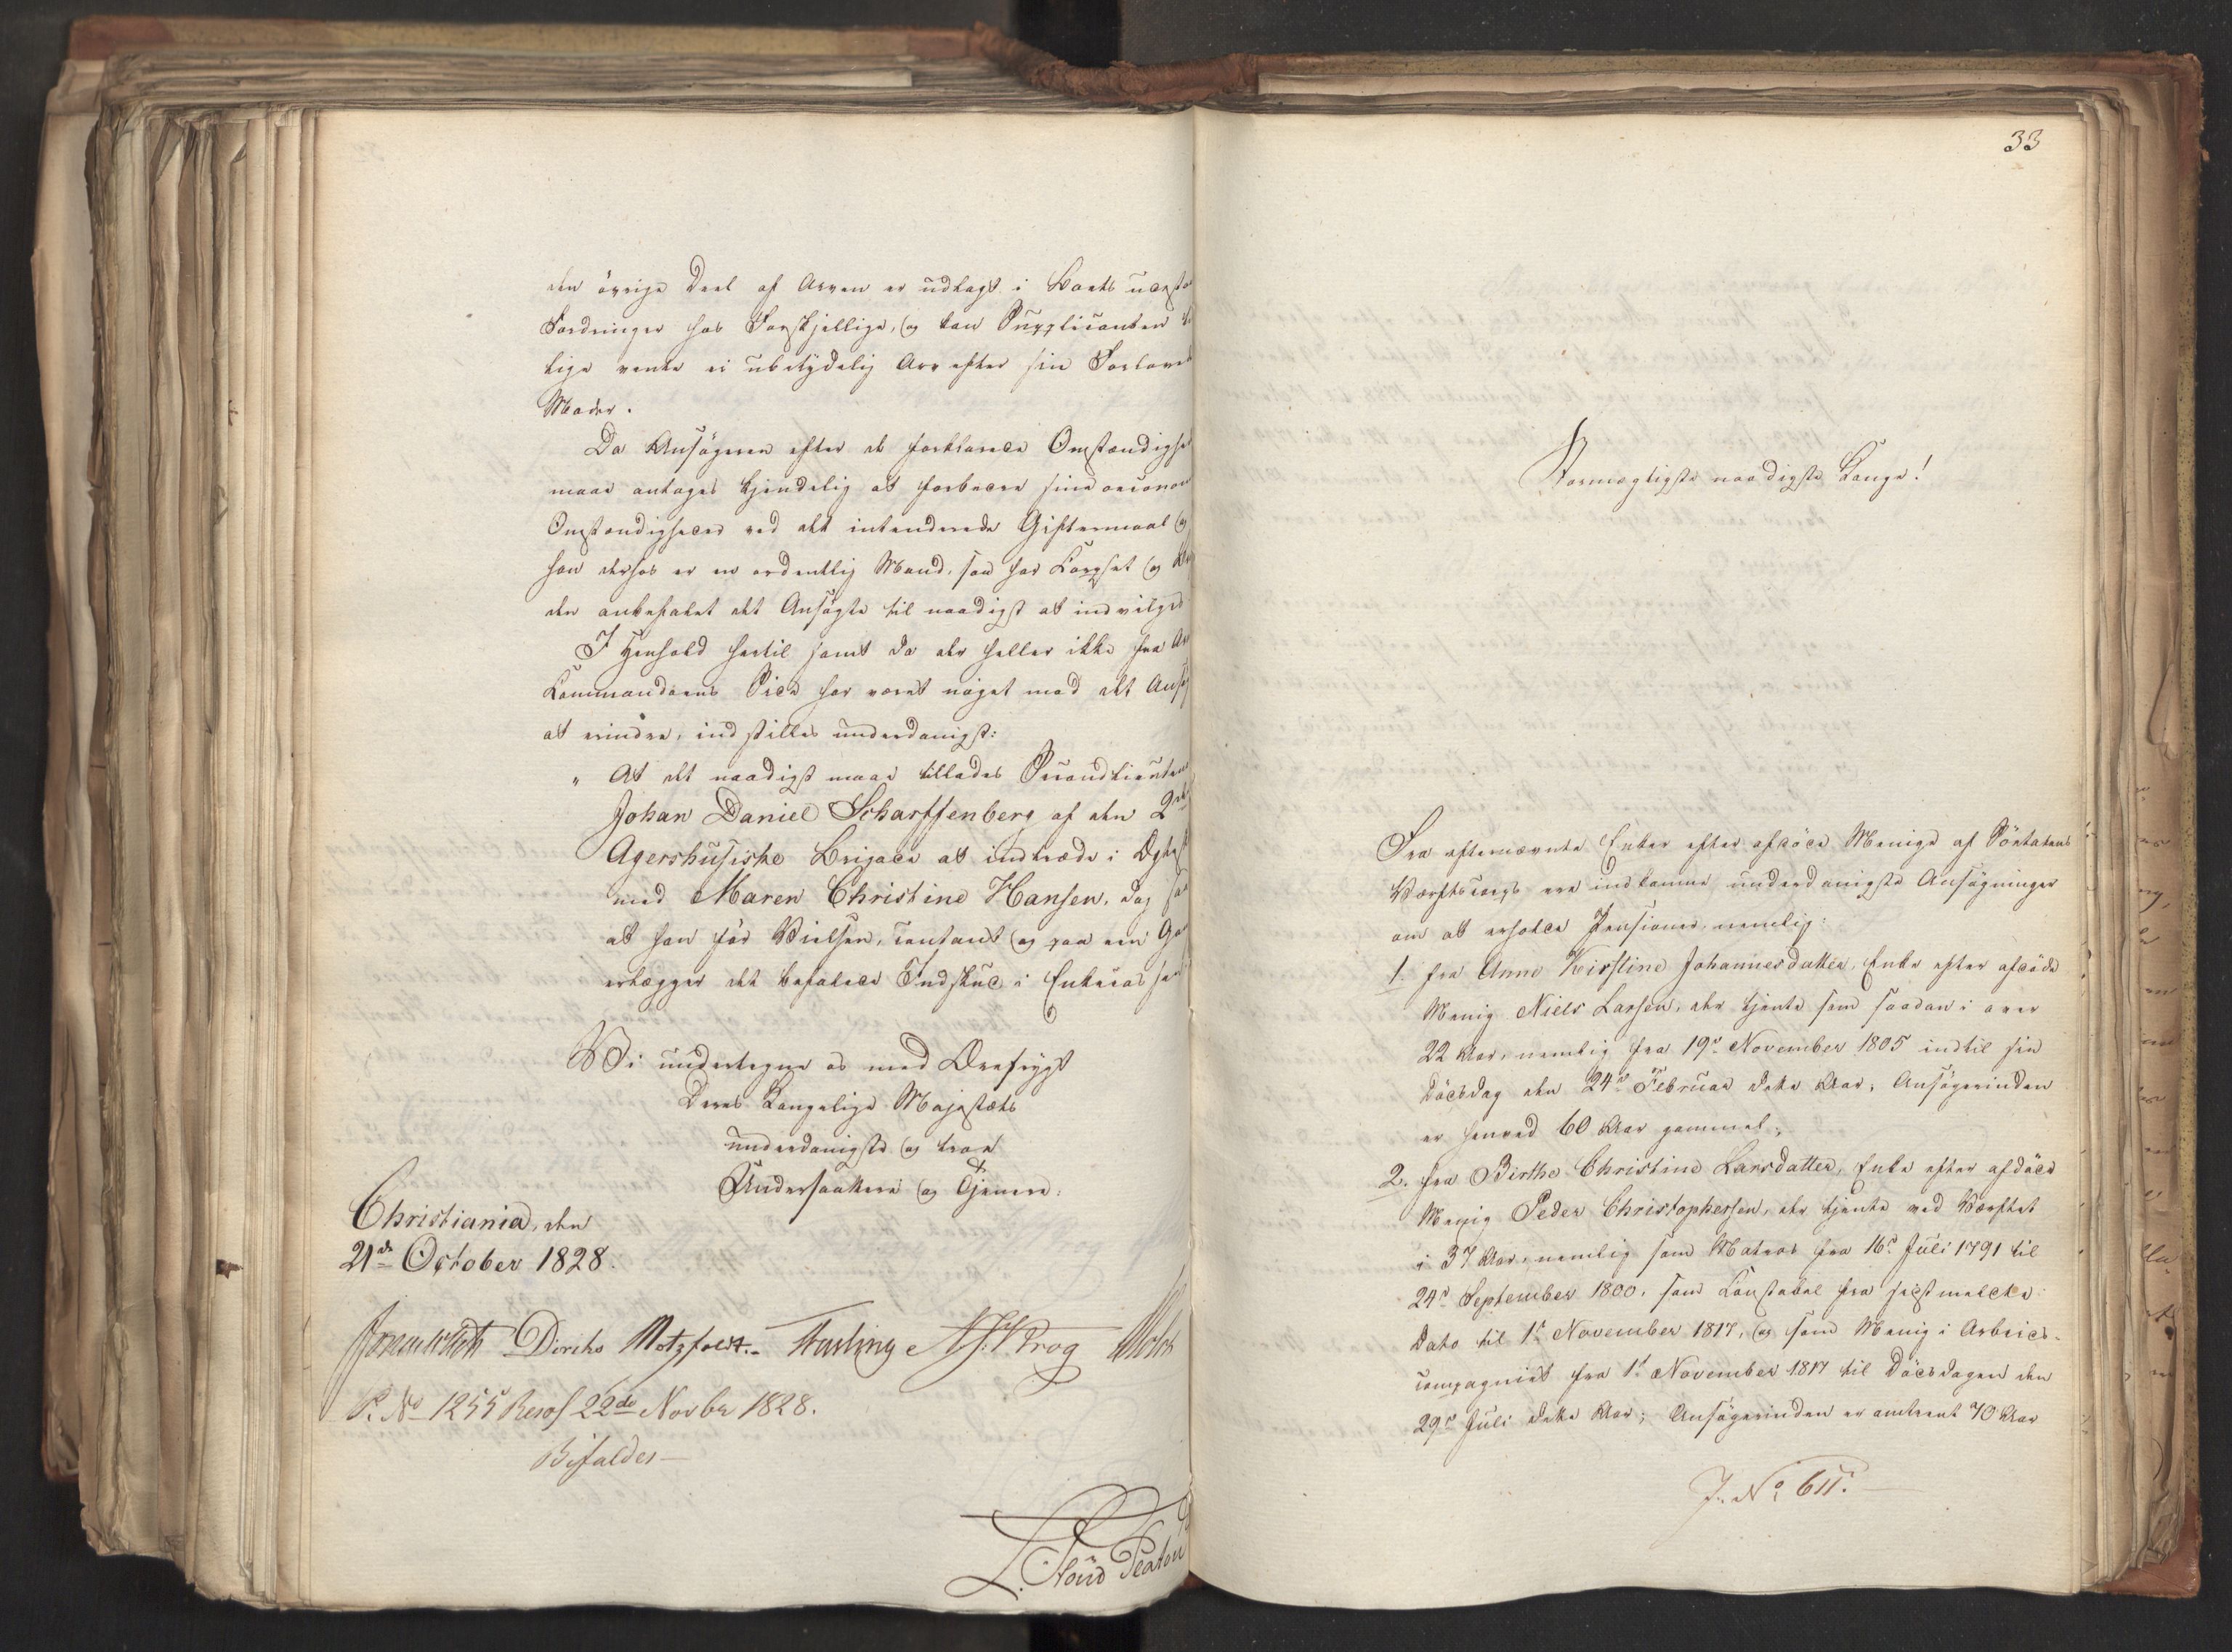 den övrige Deel af Arven er udlagt i Boets udesta
Fordringer hos Forskjellige, og kan Supplicanten
lige vente ei ubetydelig Arv efter sin Forloved
Moder.
Da Ansögeren efter de forklarede Omstændighe
maae antages kjendelig at forbedre sine oeconom
Omstændigheder ved det intenderede Giftermaal og
han derhos er en ordentlig Mand, saa har Corpset og
den anbefalet det Ansögte til naadigst at indvilges
I Henhold hertil samt da der heller ikke fra Ar
Commandoens Side har været noget mod det Ansög
at erindre, indstilles underdanigst:
" At det naadigst maae tillades Secondlieutena
Johan Daniel Scharffenberg af den 2den
Agershusiske Brigade at indtræde i Ægtesk
med Maren Christine Hansen, dog saa
at han för Vielsen, contant og paa een Ga
erlægger det befalede Indskud i Enkecassen
Vi undertegne os med Ærefrygt
Deres Kongelige Majestæts
underdanigste og troe
Undersaatter og Tjenere.
Christiania, den
21de October 1828.
Diriks Motzfeldt. Fasting Krog
P. No 1255 Resol 22de Novbr 1828.
Bifaldes
33
Stormægtigste naadigste Konge!
Fra efternævnte Enker efter afdöde Menige af Söetatens
Værftscorps ere indkomne underdanigste Ansögninger
om at erholde Pensioner, nemlig:
1. fra Anne Kirstine Johannesdatter, Enke efter afdöde
Menig Niels Larsen, der tjente som saadan i over
22 Aar, nemlig fra 19de November 1805 indtil sin
Dödsdag den 24de Februar dette Aar; Ansögerinden
er henved 60 Aar gammel;
2. fra Birthe Christine Larsdatter, Enke efter afdöde
Menig Peder Christophersen, der tjente ved Værftet
i 37 Aar, nemlig som Matros fra 16de Juli 1791 til
24de September 1800, som Constabel fra sidstmeldte
Dato til 1ste November 1817, og som Menig i Arbeids-
compagniet fra 1ste November 1817 til Dödsdagen den
29de Juli dette Aar; Ansögerinden er omtrent 70 Aar
J. No 611.